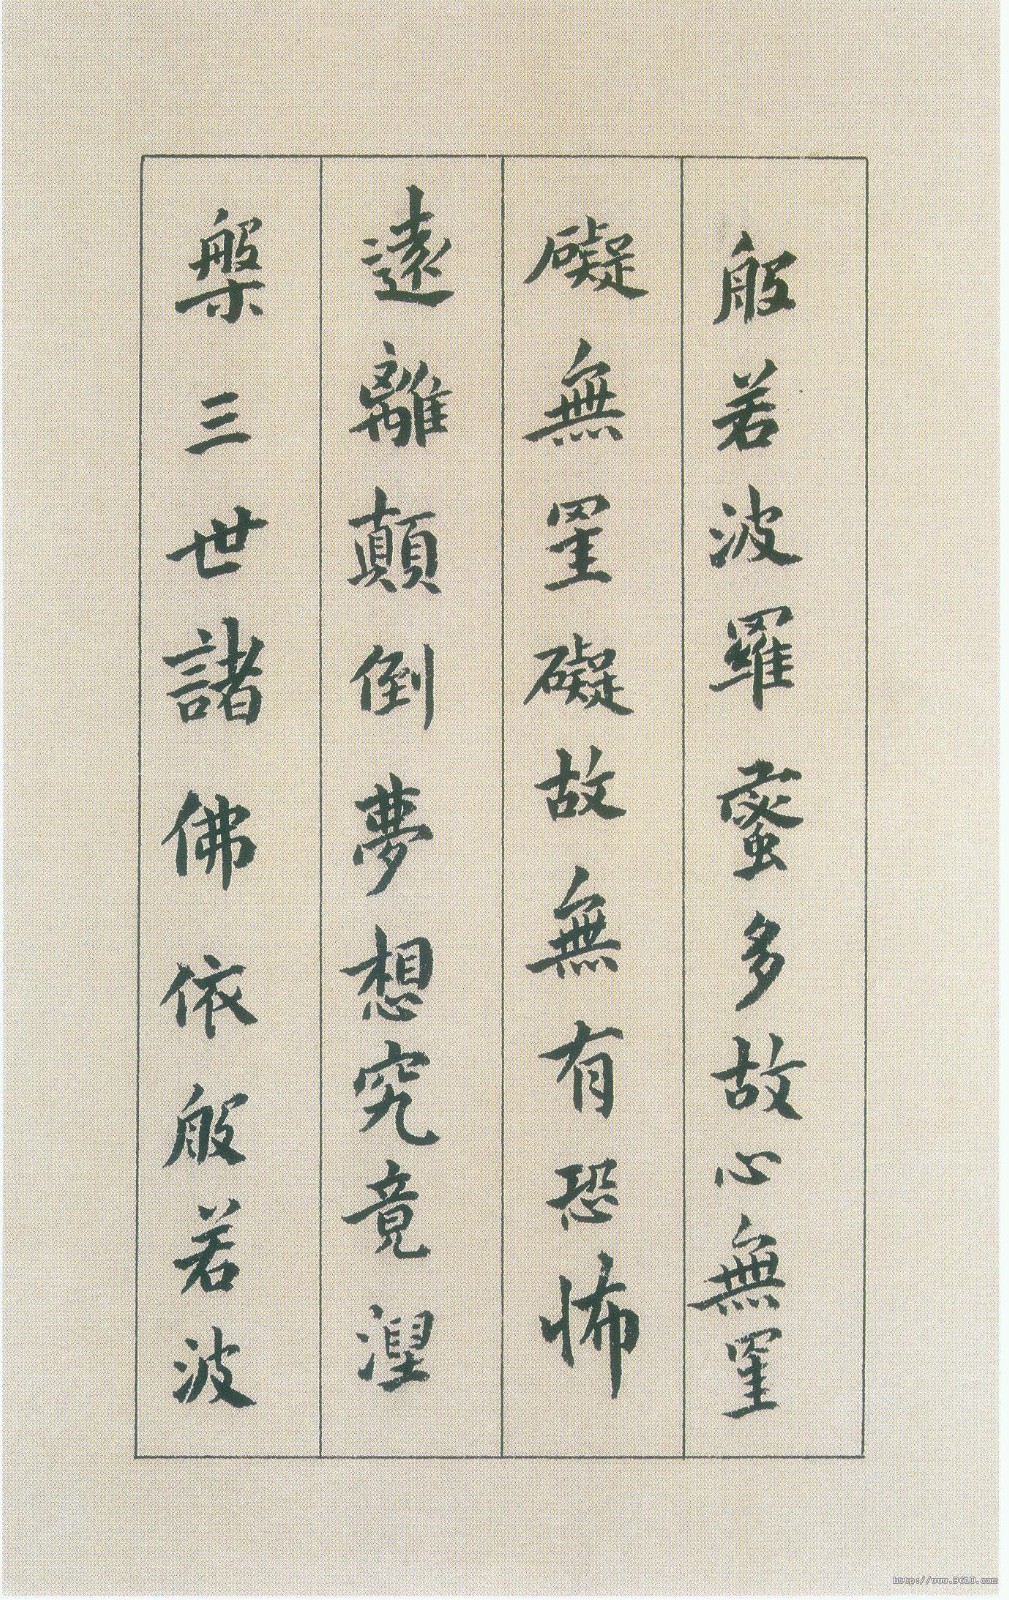 般若波羅蜜多故心無罣
礙無罣礙故無有恐怖
遠離顛倒夢想究竟涅
槃三世諸佛依般若波
http://www.9610.com